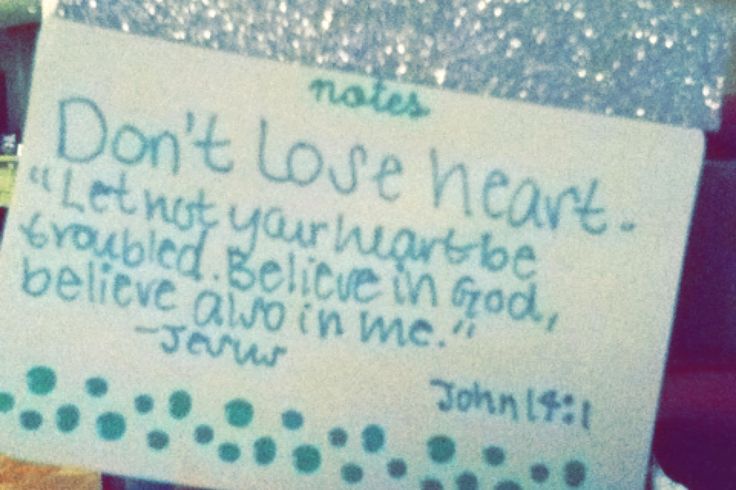 notes
Don't lose heart.
"Let not your heart be
troubled. Believe in God,
believe also in me."
-Jesus
John 14:1